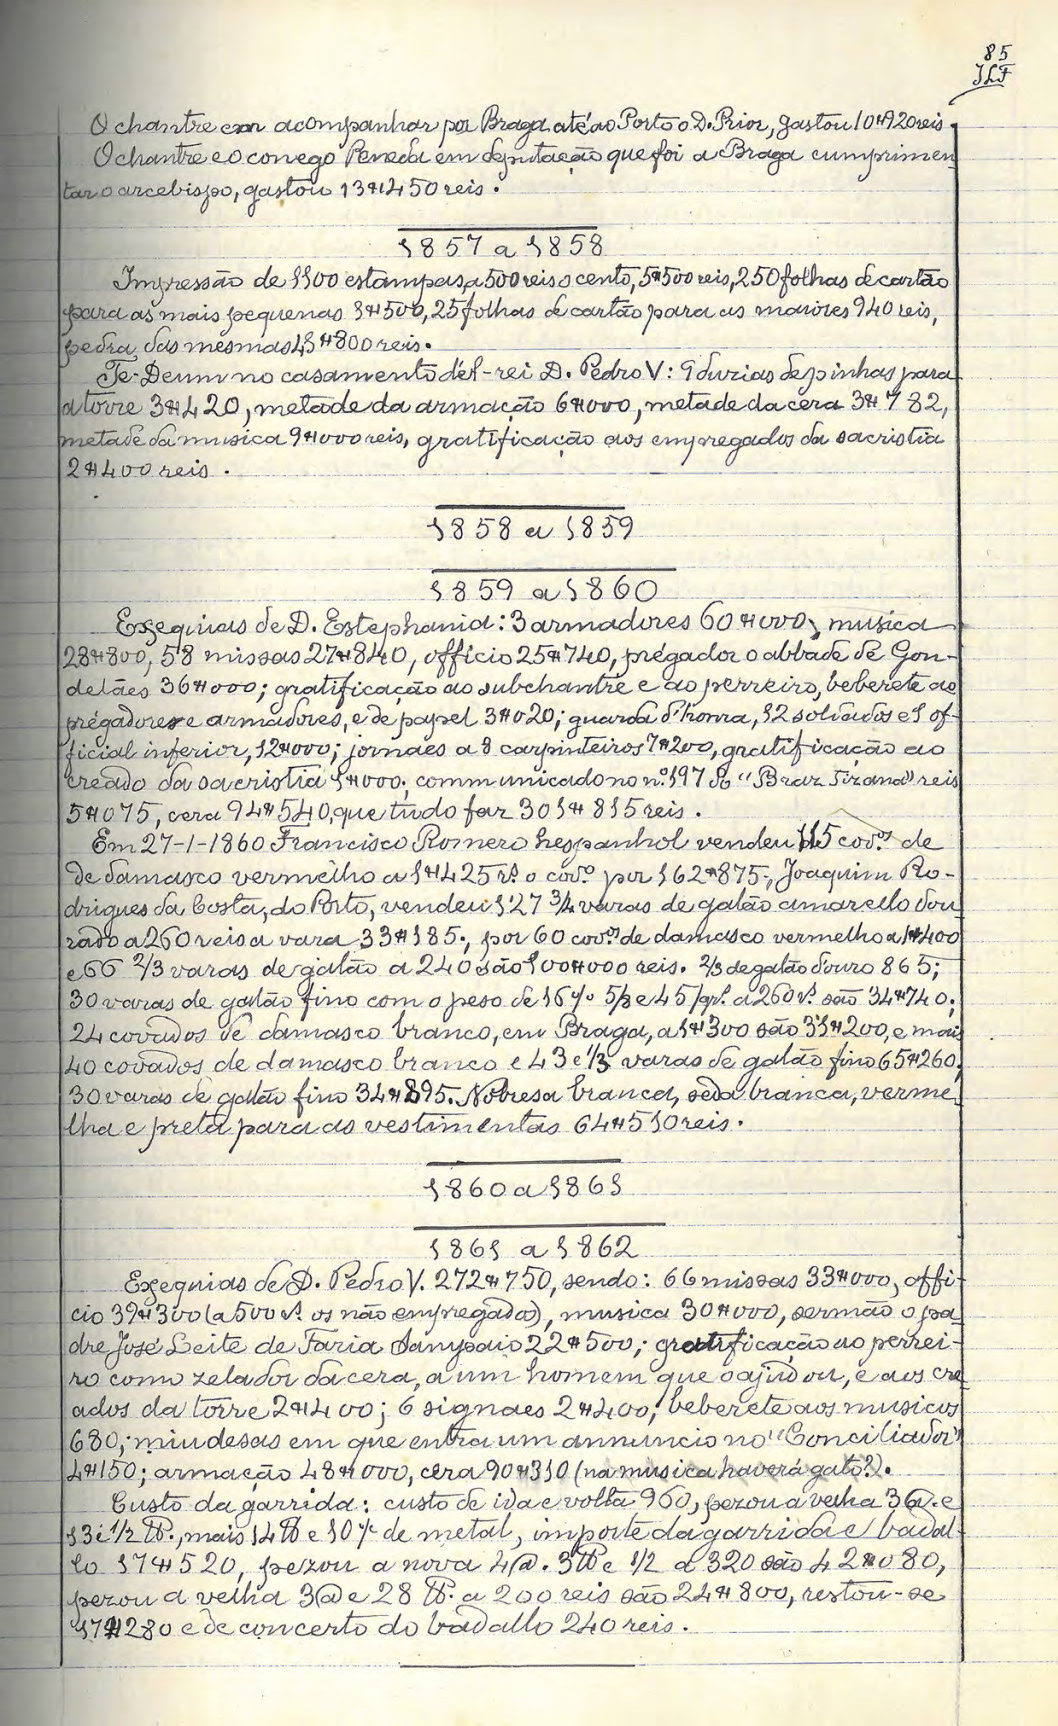 85
JLF
O chantre em acompanhar por Braga até ao Porto o D. Prior, gastou 10$920 reis.
O chantre e o conego Peneda em deputação que foi a Braga cumprimen-
tar o arcebispo, gastou 13$450 reis.
1857 a 1858
Impressão de 1100 estampas, a 500 reis o cento, 5$500 reis, 250 folhas de cartão
para as mais pequenas 1$500, 25 folhas de cartão para as maiores 940 reis,
pedra das mesmas 13$800 reis.
Te-Deum no casamento d'el-rei D. Pedro V: 9 duzias de pinhas para
a torre 3$420, metade da armação 6$000, metade da cera 3$782,
metade da musica 9$000 reis, gratificação aos empregados da sacristia
2$400 reis.
1858 a 1859
1859 a 1860
Exequias de D. Estephania: 3 armadores 60$000, musica
28$800, 58 missas 27$840, officio 25$740, prégador o abbade de Gon-
delães 36$000; gratificação ao subchantre e ao perreiro, beberete ao
prégador e armadores, e de papel 3$020; guarda d'honra, 12 soldados e 1 of-
ficial inferior, 12$000; jornaes a 8 carpinteiros 7$200, gratificação ao
creado da sacristia 1$000; communicado no nº. 197 do "Braz Tizana" reis
5$075, cera 94$540, que tudo faz 301$815 reis.
Em 27-1-1860 Francisco Romero hespanhol vendeu 115 cov.os de
de damasco vermelho a 1$425 rs. o cov.o por 162$875; Joaquim Ro-
drigues da Costa, do Porto, vendeu 127 3/4 varas de galão amarello dou-
rado a 260 reis a vara 33$185; por 60 cov.os de damasco vermelho a 1$400
e 66 2/3 varas de galão a 240 são 100$000 reis. 2/3 de galão d'ouro 865;
30 varas de galão fino com o peso de 16 5/8 e 45 gr.s a 260 rs. são 34$740;
24 covados de damasco branco, em Braga, a 1$300 são 31$200, e mais
40 covados de damasco branco e 43 e 1/3 varas de galão fino 65$260;
30 varas de galão fino 34$895. Nobresa branca, seda branca, verme-
lha e preta para as vestimentas 64$510 reis.
1860 a 1861
1861 a 1862
Exequias de D. Pedro V. 272$750, sendo: 66 missas 33$000, offi-
cio 39$300 (a 500 rs. os não empregados), musica 30$000, sermão o pa-
dre José Leite de Faria Sampaio 22$500; gratificação ao perrei-
ro como zelador da cera, a um homem que o ajudou, e aos cre-
ados da torre 2$400; 6 signaes 2$400; beberete aos musicos
680; miudesas em que entra um annuncio no "Conciliador"
4$150; armação 48$000, cera 90$310 (na musica haverá gato?).
Custo da garrida: custo de ida e volta 960, pezou a velha 3@. e
13 e 1/2 lb., mais 14 lb e 10 de metal, importe da garrida e badal-
lo 17$520, pezou a nova 4@. 3 lb e 1/2 a 320 são 42$080,
pezou a velha 3@ e 28 lb. a 200 reis são 24$800, restou-se
17$280 e de concerto do badallo 240 reis.